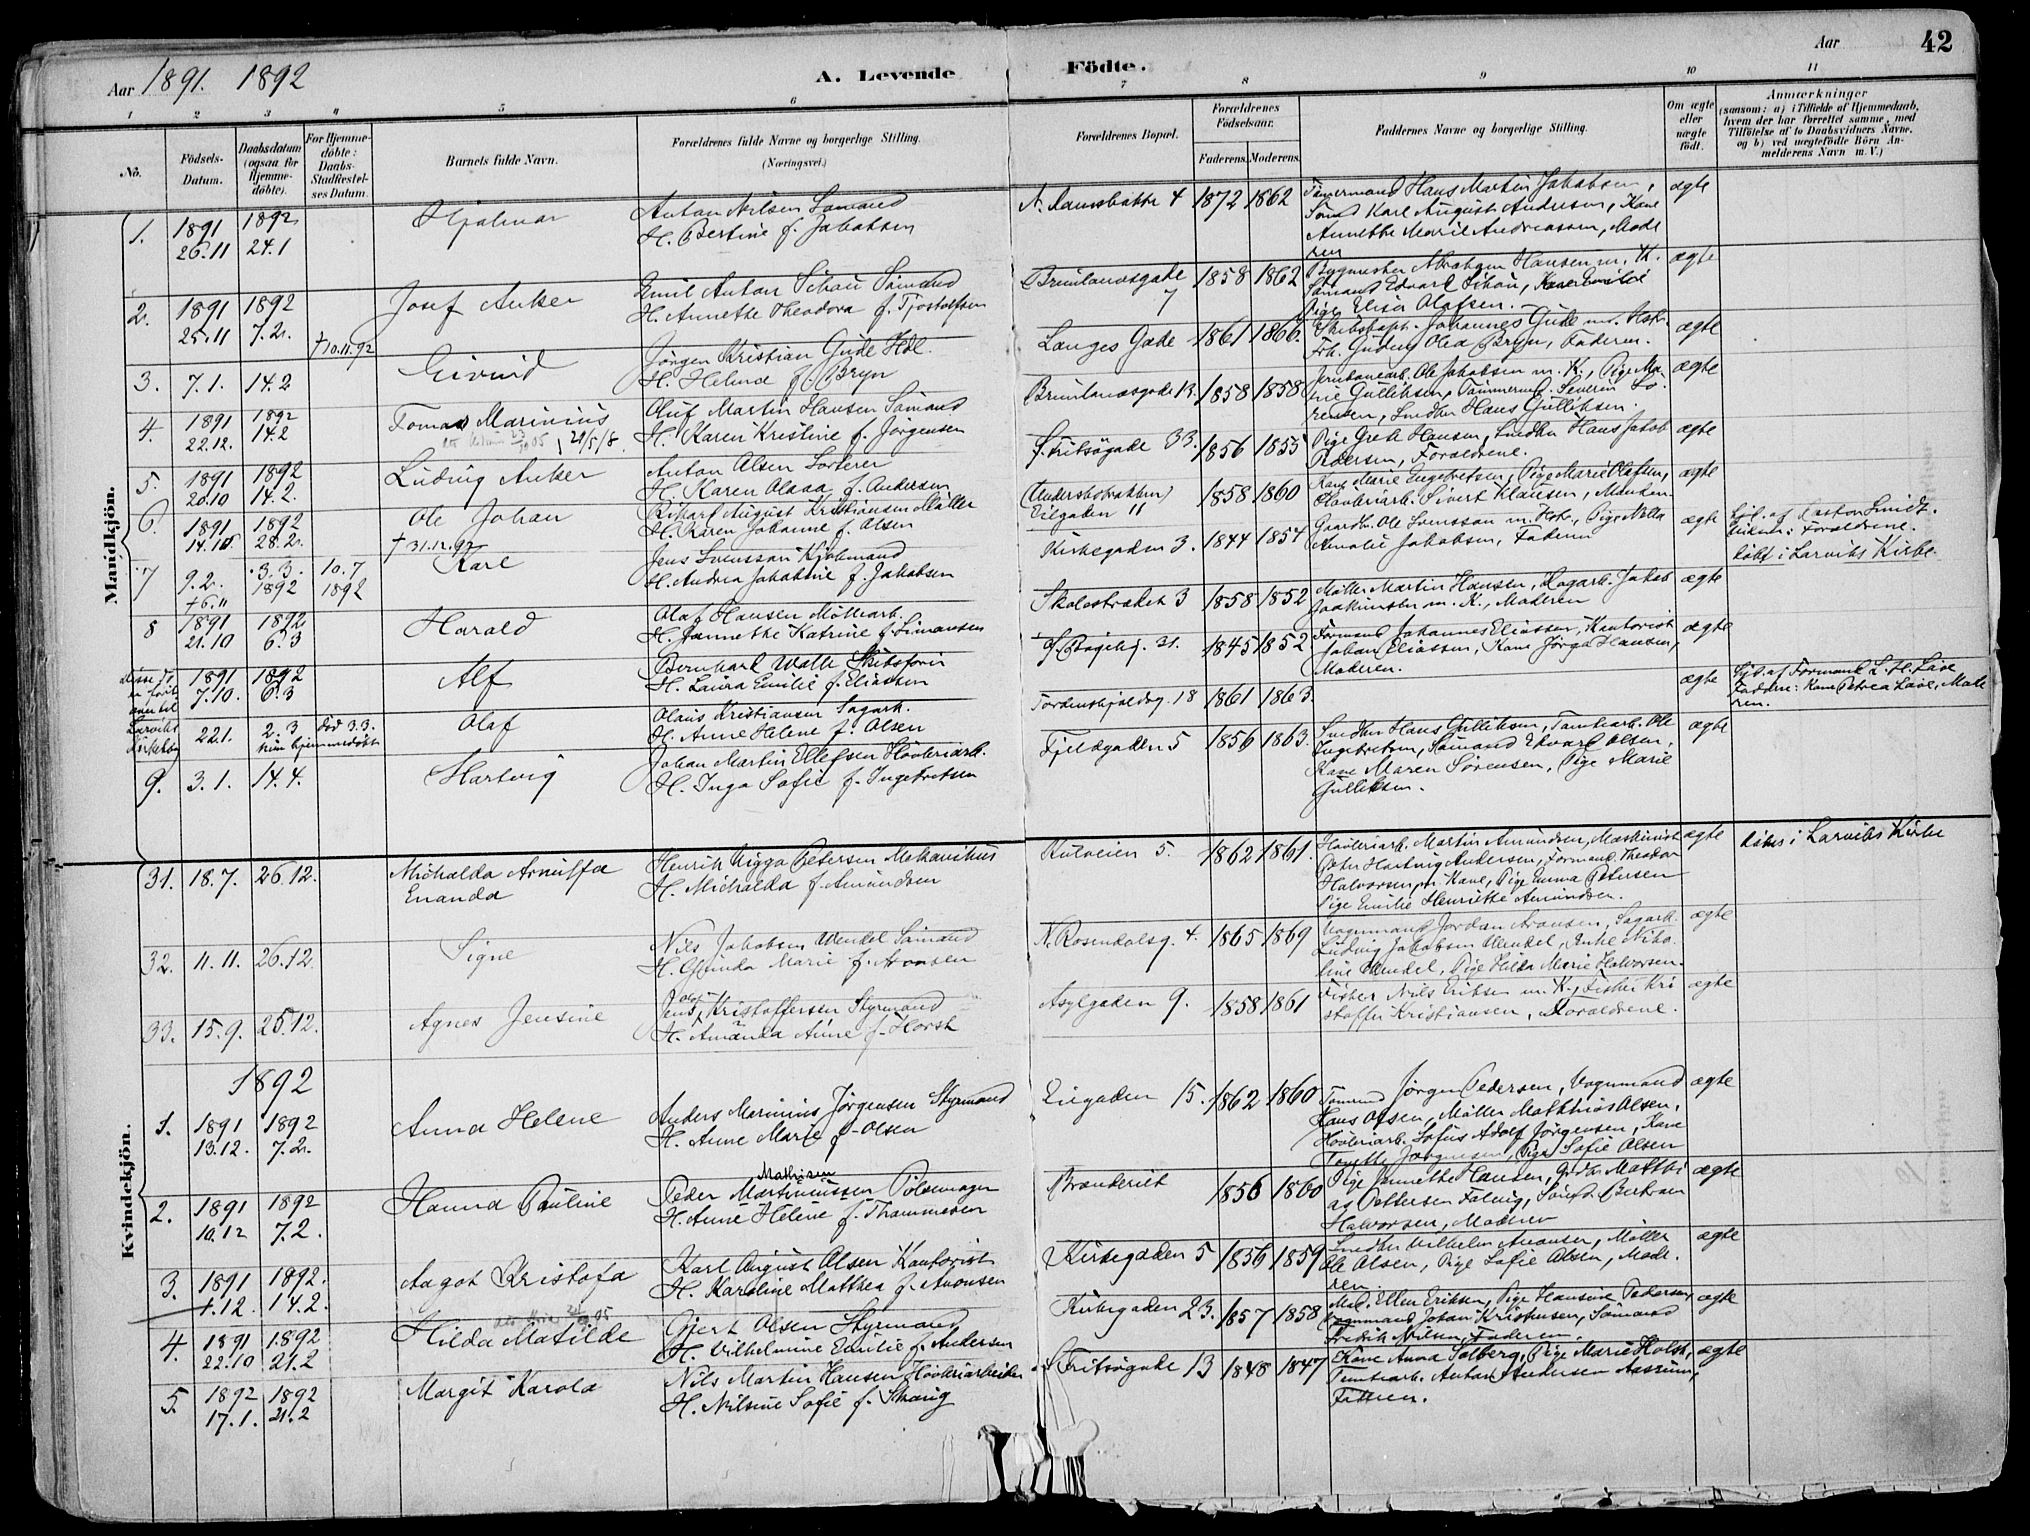 42
Aar 1891. 1892
A. Levende Fødte.
Aar
1 2 3 4 5 6 7 8 9 10 11
No.
Födsels-Datum.
Daabsdatum (ogsaa for Hjemmedöbte).
For Hjemmedöbte: Daabs-Stadfæstelses Datum.
Barnets fulde Navn.
Forældrenes fulde Navne og borgerlige Stilling. (Næringsvei.)
Forældrenes Bopæl.
Forældrenes Födselsaar.
Faderens. Moderens.
Faddernes Navne og borgerlige Stilling.
Om ægte eller uægte født.
Anmærkninger (saasom: a) i Tilfælde af Hjemmedaab, hvem der har forrettet samme, med Tilföielse af to Daabsvidners Navne, og b) ved uægtefödte Börn Anmelderens Navn m. V.)
Mandkjön.
1. 1891 26.11 1892 24.1 Hjalmar
Anton Nilsen Sømand
H. Bertine f. Jakobsen
4 1872 1862
Tømermand Hans Martin Jakobsen,
Sømd Karl August Andersen, Kone
Annette Marie Andreassen, Mode
ren
ægte
2. 1891 25.11 1892 7.2. Josef Anker
Emil Anton Schau Sømand
H. Annette Theodora f. Tjostolfsen
Brunlanæsgade 7 1858 1862
Bygmester Abraham Hansen m. K.
Sømand Edvard Schau,
Pige Elisa Olafsen.
ægte
3. 7.1. 14.2 † 10.11.92 Eivind
Jørgen Kristian Gude Hdl.
H. Helma f. Bryn
Langes Gade 1861 1866.
Skibskapt. Johannes Gude m. Hstr.
Frk. Gudny Olea Bryn, Faderen.
ægte
4. 1891 22.12. 1892 14.2 Tomas Marinius
Oluf Martin Hansen Sømand
H. Karen Kristine f. Jørgensen
Brunlanæsgade 13. 1858 1858
Jernbanearb. Ole Jakobsen m. K., Pige Ma-
rie Gulliksen, Tømmermd. Severin Lo-
rentsen, Snedker Hans Gulliksen.
ægte
5. 1891 20.10 1892 14.2. Ludvig Anker
Anton Olsen Sorterer
H. Karen Olava f. Andersen
S. Fritsøgade 33. 1856 1855
Pige Grete Hansen, Snedker Hans Jakob
Pedersen, Forældrene.
ægte
6. 1891 14.10. 1892 28.2. Ole Johan
Rikard August Kristiansen Møller
H. Karen Johanne f. Olsen
Eilgaden 11 1858 1860
Kone Marie Engebretsen, Pige Marie Olafsen,
Høvleriarb. Sivert Klausen, Manden
ægte
7 9.2. † 6.11 3.3. 1892 10.7 1892 † 31.12.92 Karl
Jens Svensson Kjøbmand
H. Andrea Jakobine f. Jakobsen
Kirkegaden 3. 1844 1854
Gaardb. Ole Svensson m. Hstr., Pige Milla
Amalie Jakobsen, Faderen
ægte
Hjd. af Pastor Smidt.
Forældrene.
døbt i Larviks Kirke.
8 1891 21.10 1892 6.3 Harald
Olaf Hansen Møllearb.
H. Jannette Katrine f. Simonsen
Skolestrædet 3 1858 1852
Møller Martin Hansen, Sagarb. Jakob
Joakimsen m. K., Moderen
ægte
1891 7.10. 1892 6.3 Alf
Bernhard Walle Skibsfører
H. Laura Emilie f. Eliassen
31. 1845 1852.
Formand Johannes Eliassen, Kontorist
Johan Eliassen, Kone Jørga Hansen,
Moderen.
ægte
22.1. 2.3 død 3.3. kun hjemmedøbt Olaf
Olaus Kristiansen Sagarb.
H. Anne Helene f. Olsen
Tordenskjoldsg. 18 1861 1863.
ægte
Hjd. af Formand L. H. Lave
Faddere: Kone Petrea Lave, Mode
ren.
9. 3.1. 14.4. Hartvig
Johan Martin Ellefsen Høvleriarb.
H. Inga Sofie f. Ingebretsen
Fjeldgaden 5 1856 1863.
Snedker Hans Gulliksen, Tomtearb. Ole
Ingebretsen, Sømand Edvard Olsen,
Kone Maren Sørensen, Pige Marie
Gulliksen.
ægte
Kvindekjön.
31. 18.7. 26.12. Michalda Arnulfa
Enanda
Henrik Viggo Petersen Mekanikus
H. Michalda f. Amundsen
Kulveien 5. 1862 1861.
Høvleriarb. Martin Amundsen, Maskinist
Peter Hartvig Andersen, Formand Theodor
Halvorsen m. Kone, Pige Emma Petersen
Pige Emilie Henriette Amundsen.
ægte
døbt i Larviks Kirke
32. 11.11. 26.12 Signe
Nils Jakobsen Wendel Sømand
H. Gunda Marie f. Aronsen
N. Rosendalsg. 4. 1865 1869
Vognmand Jordan Aronsen, Sagarb.
Ludvig Jakobsen Wendel, Enke Niko-
line Wendel, Pige Hilda Marie Halvorsen.
ægte
33. 15.9. 25.12. Agnes Jensine
Jens Olaf Kristoffersen Styrmand
H. Amanda Anne f. Horst
Asylgaden 9. 1858 1861
Fisker Nils Eriksen m. K., Fisker Kri
stoffer Kristiansen, Forældrene.
ægte
1892
1. 1891 13.12. 1892 7.2. Anna Helene
Anders Marinius Jørgensen Styrmand
H. Anne Marie f. Olsen
Eilgaden 15. 1862 1860
Tømrmd Jørgen Pedersen, Vognmand
Hans Olsen, Møller Matthias Olsen,
Høvleriarb. Sofus Adolf Jørgensen, Kone
Jørgensen, Pige Sofie Olsen
ægte
2. 1891 10.12 1892 7.2. Hanna Pauline
Mathisen
Peder Martiniussen Pølsemager
H. Anne Helene f. Thommesen
Brænderiet 1856 1860
Pige Jannette Hansen,
Pettersen Falvig, Bertram
Halvorsen, Moderen
ægte
3. 1891 1.12. 1892. 14.2. Aagot Kristofa
Karl August Olsen Kontorist
H. Karoline Matthea f. Aronsen
Kirkegaden 5 1856 1859
Snedker Vilhelm Aronsen, Møller
Ole Olsen, Pige Sofie Olsen, Mode
ren.
ægte
4. 1891 22.10 1892 21.2 Hilda Matilde
Gjert Olsen Styrmand
H. Vilhelmine Emilie f. Andersen
Kirkegaden 23. 1857 1858
Mad. Ellen Eriksen, Pige Hansine Pedersen,
Vognmand Johan Kristensen, Sømand
Fredrik Nilsen, Faderen.
ægte
5. 1892 17.1. 1892 21.2 Margit Karola
Nils Martin Hansen Høvleriarbeider
H. Nilsine Sofie f. Skaug
Fritsøgade 13 1848 1847
Kone Anna Solberg, Pige Marie Holst,
Tomtearb. Anton Andersen Aasrum,
Faderen.
ægte